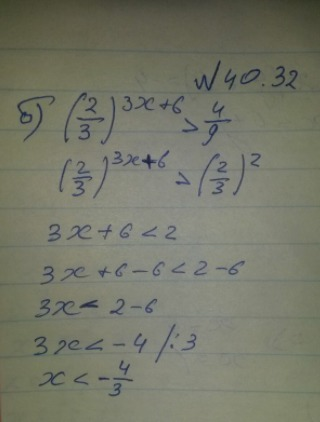 № 40.32
б) (2/3)^(3x+6) > 4/9
(2/3)^(3x+6) > (2/3)^2
3x+6<2
3x+6-6<2-6
3x< 2-6
3x<-4 /:3
x<-4/3